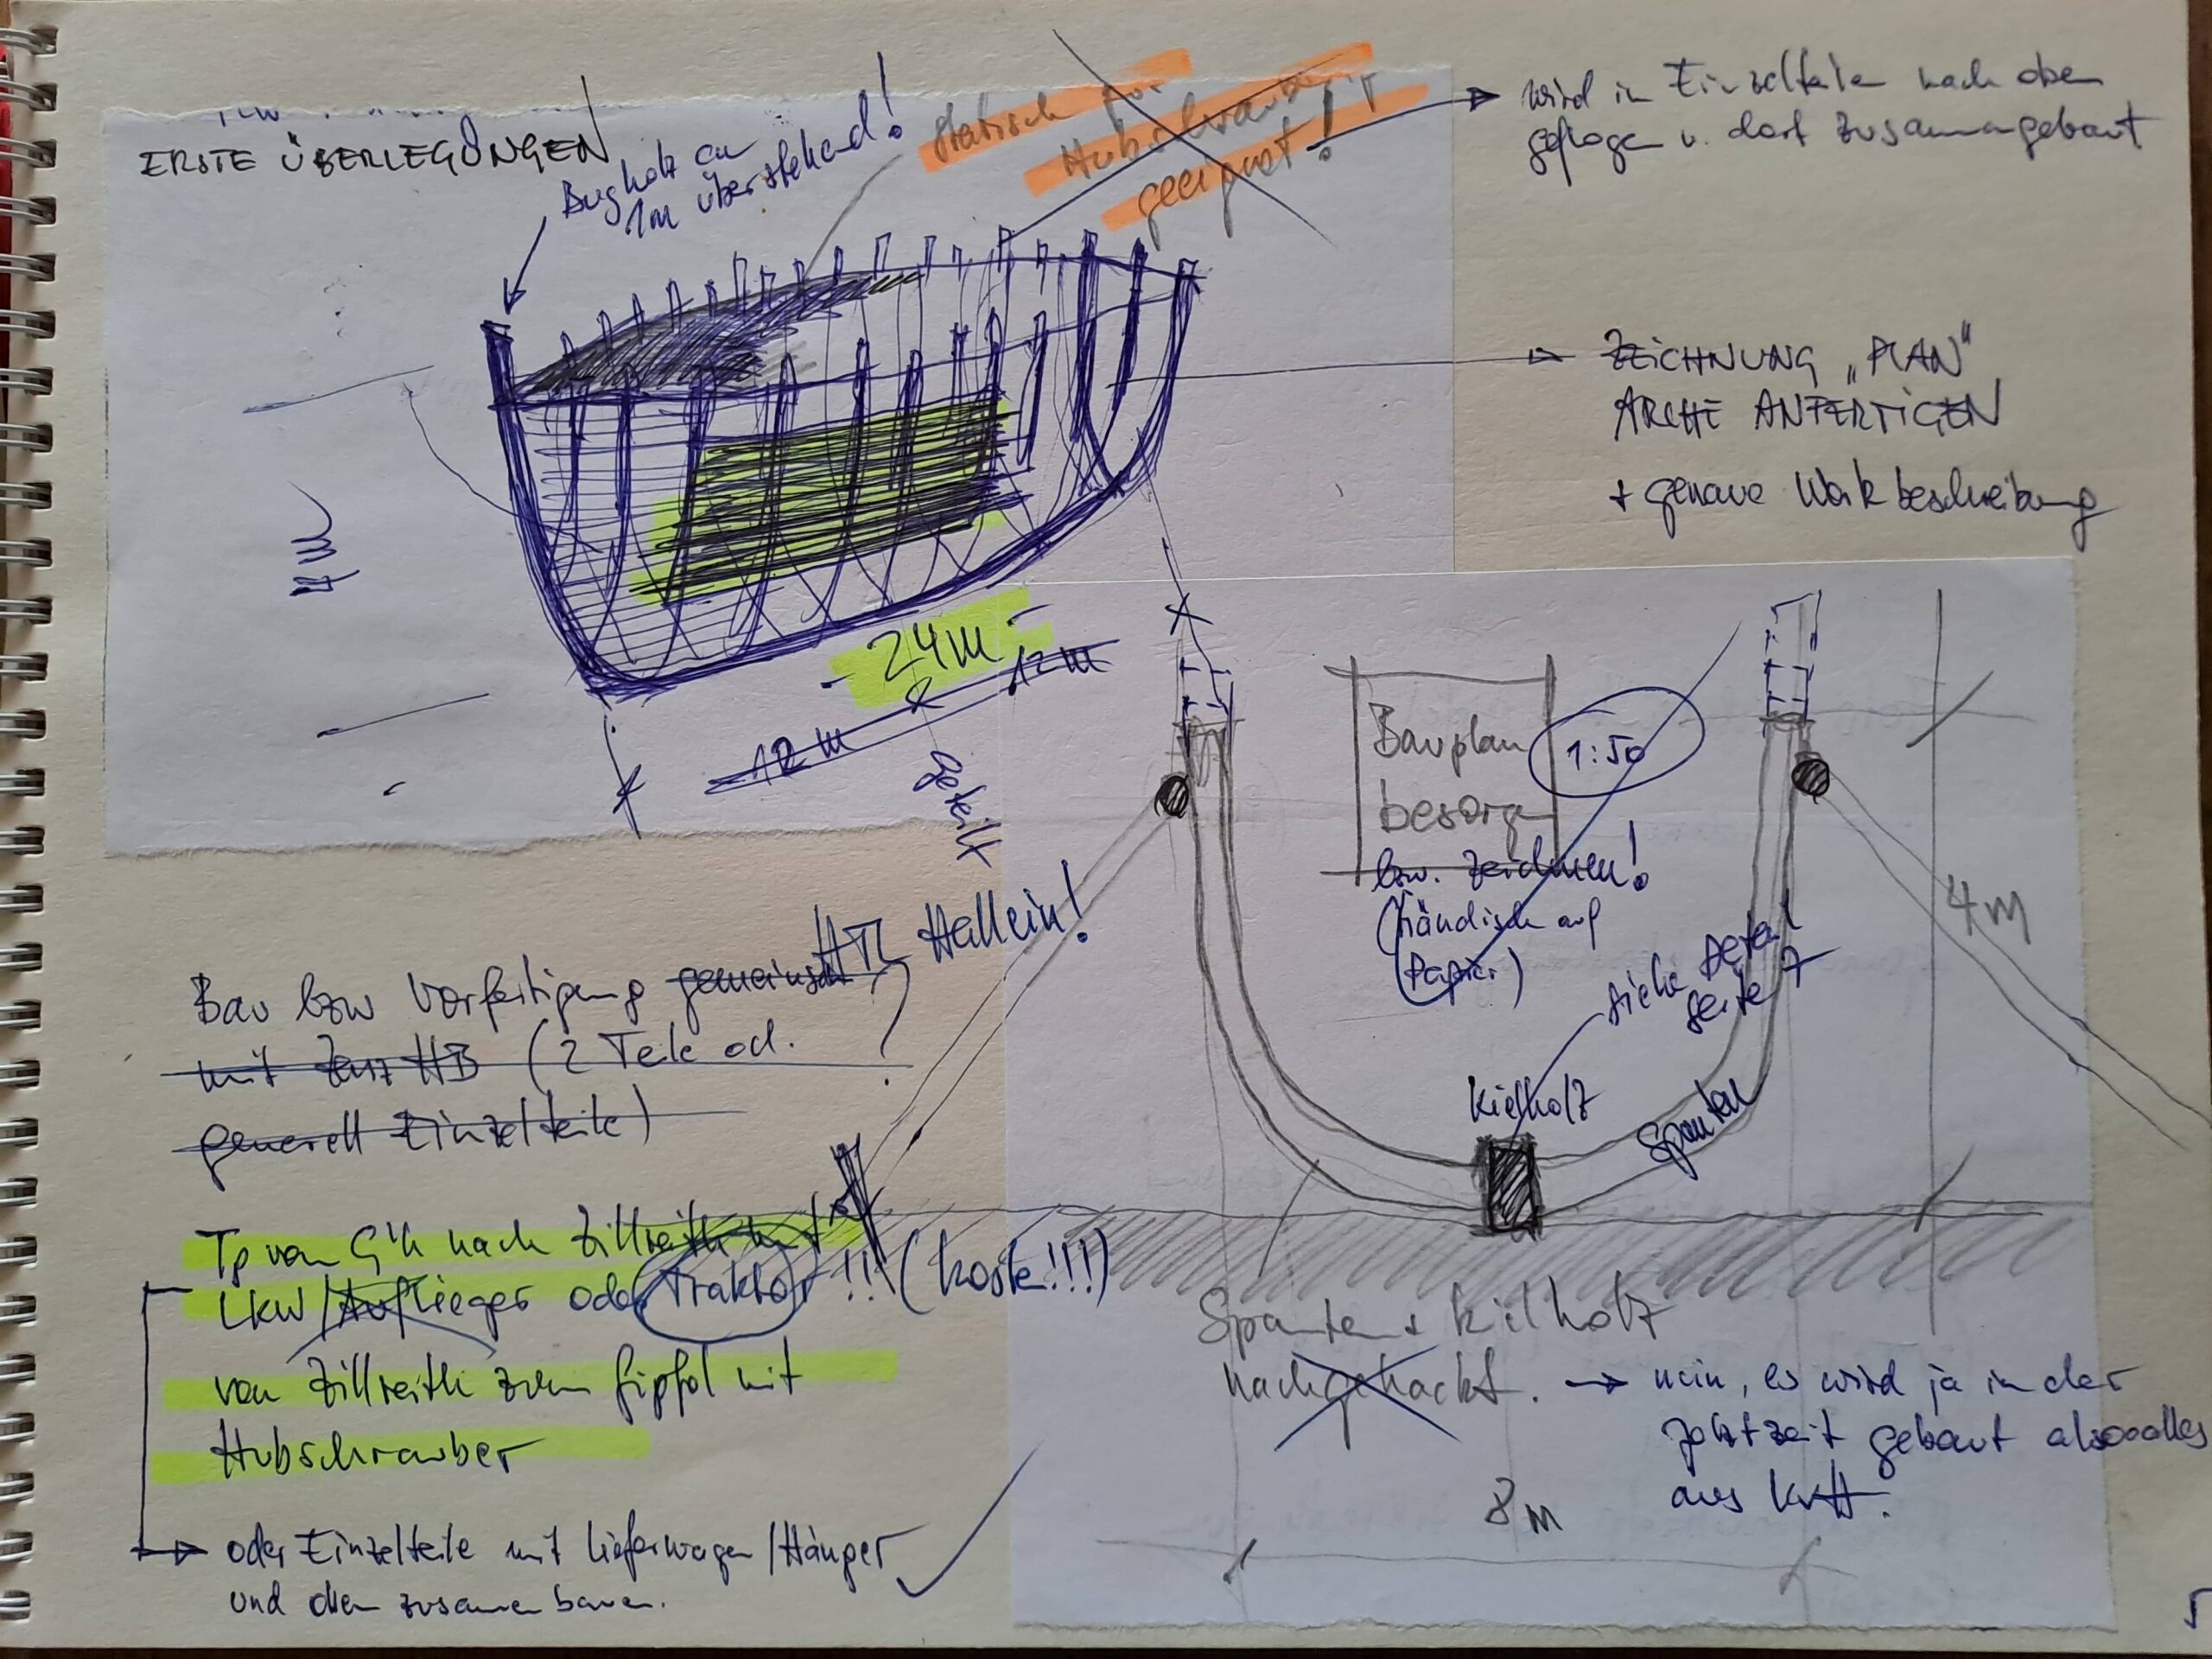 ERSTE ÜBERLEGUNGEN
Bugholz ca
1m überstehend!
statisch für
Hubschrauber
geeignet!
wird in Einzelteile nach oben
geflogen u. dort zusammengebaut
ZEICHNUNG „PLAN"
ARCHE ANFERTIGEN
+ genaue Werkbeschreibung
4m
24m
12m
12m
geteilt
Bauplan
besorgen
1:50
bzw. zeichnen!
(händisch auf
Papier)
4m
siehe Detail
Seite 7
Kielholz
Spanten
HTL Hallein!
Bau bzw Vorfertigung gemeinsam
mit HB (2 Teile od.
generell Einzelteile)
?
Tp von G'h nach Zillreith mit
LKW/Auflieger oder Traktor!! (Koste!!!)
von Zillreith zum Gipfel mit
Hubschrauber
oder Einzelteile mit Lieferwagen/Hänger
und oben zusammenbauen.
Spanten + Kielholz
nachgehackt.
nein, es wird ja in der
Jetztzeit gebaut also alles
aus KVH.
8m
5